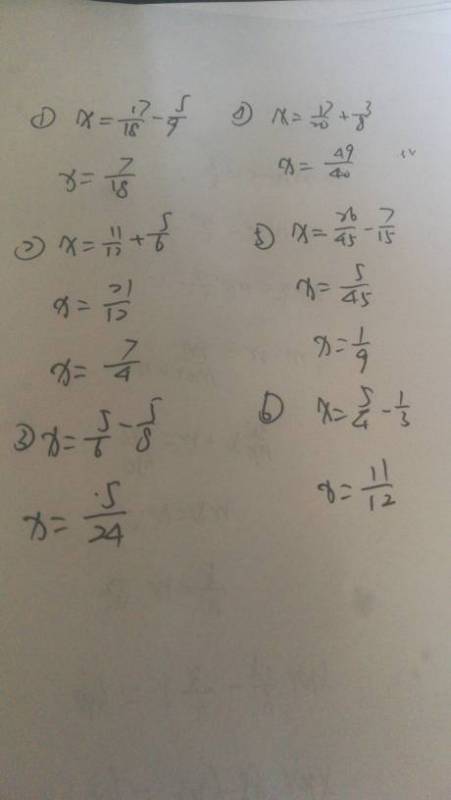 ① x=17/18-5/9
x=7/18
② x=11/12+5/6
x=21/12
x=7/4
③ x=5/6-5/8
x=5/24
④ x=17/20+3/8
x=49/40
⑤ x=26/45-7/15
x=5/45
x=1/9
⑥ x=5/4-1/3
x=11/12